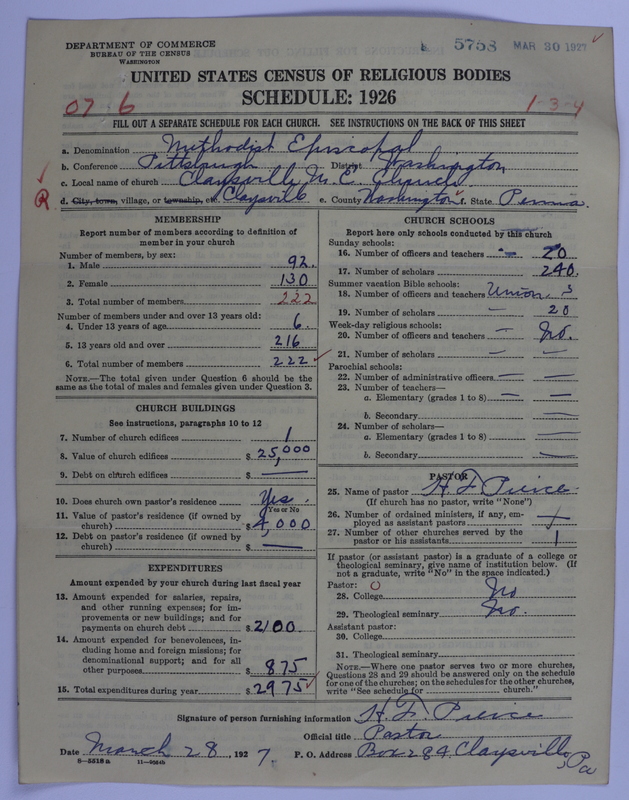 DEPARTMENT OF COMMERCE
BUREAU OF THE CENSUS
WASHINGTON
5758 MAR 30 1927
UNITED STATES CENSUS OF RELIGIOUS BODIES
SCHEDULE: 1926
07 6
1-3-4
FILL OUT A SEPARATE SCHEDULE FOR EACH CHURCH. SEE INSTRUCTIONS ON THE BACK OF THIS SHEET
a. Denomination Methodist Episcopal
b. Conference Pittsburgh District Washington
c. Local name of church Claysville M. E. Church
R
d. City, town, village, or township, etc. Claysville e. County Washington f. State. Penna.
MEMBERSHIP
Report number of members according to definition of
member in your church
Number of members, by sex:
1. Male 92.
2. Female 130
3. Total number of members 222
Number of members under and over 13 years old:
4. Under 13 years of age 6.
5. 13 years old and over 216
6. Total number of members 222
NOTE.—The total given under Question 6 should be
same as the total of males and females given under Question 3.
CHURCH BUILDINGS
See instructions, paragraphs 10 to 12
7. Number of church edifices 1
8. Value of church edifices $25,000
9. Debt on church edifices $ —
10. Does church own pastor's residence Yes.
Yes or No
11. Value of pastor's residence (if owned by
church) $4,000
12. Debt on pastor's residence (if owned by
church) $ —
EXPENDITURES
Amount expended by your church during last fiscal year
13. Amount expended for salaries, repairs,
and other running expenses; for im-
provements or new buildings; and for
payments on church debt $2100.
14. Amount expended for benevolences, in-
cluding home and foreign missions; for
denominational support; and for all
other purposes $ 875
15. Total expenditures during year $2975
CHURCH SCHOOLS
Report here only schools conducted by this church
Sunday schools:
16. Number of officers and teachers 20
17. Number of scholars 240.
Summer vacation Bible schools:
18. Number of officers and teachers Union. 3
19. Number of scholars — 20
Week-day religious schools:
20. Number of officers and teachers — No.
21. Number of scholars — —
Parochial schools:
22. Number of administrative officers — —
23. Number of teachers—
a. Elementary (grades 1 to 8) — —
b. Secondary —
24. Number of scholars—
a. Elementary (grades 1 to 8) —
b. Secondary —
PASTOR
25. Name of pastor H. F. Pierce
(If church has no pastor, write "None")
26. Number of ordained ministers, if any, em-
ployed as assistant pastors
27. Number of other churches served by the
pastor or his assistants 1
If pastor (or assistant pastor) is a graduate of a college or
theological seminary, give name of institution below. (If
not a graduate, write "No" in the space indicated.)
Pastor: O
28. College No
29. Theological seminary No.
Assistant pastor:
30. College
31. Theological seminary
NOTE.—Where one pastor serves two or more churches,
Questions 28 and 29 should be answered only on the schedule
for one of the churches; on the schedules for the other churches,
write "See schedule for church."
Signature of person furnishing information H. F. Pierce
Official title Pastor
Date March 28, 1927. P. O. Address Box 284, Claysville, Pa
8—5518a 11—9064b